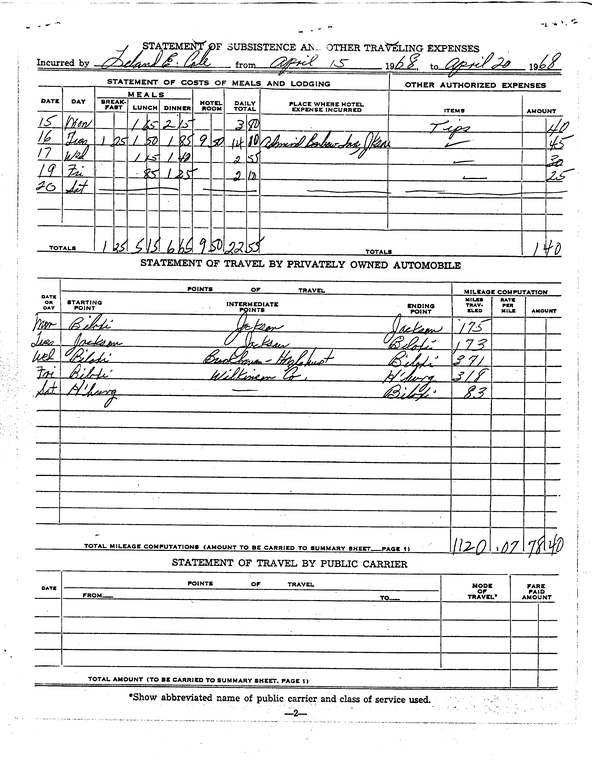 STATEMENT OF SUBSISTENCE AND OTHER TRAVELING EXPENSES
Incurred by Leland E. Cole from April 15 1968, to April 20 1968
STATEMENT OF COSTS OF MEALS AND LODGING OTHER AUTHORIZED EXPENSES
MEALS
DATE DAY BREAK-FAST LUNCH DINNER HOTEL ROOM DAILY TOTAL PLACE WHERE HOTEL EXPENSE INCURRED ITEMS AMOUNT
15 Mon 1 65 2 15 3 80 Tips 40
16 Tues 1 25 1 50 1 85 9 50 14 10 45
17 Wed 1 15 1 40 2 55 30
19 Fri 85 1 25 2 10 25
20 Sat
TOTALS 1 25 5 15 6 65 9 50 22 55 TOTALS 1 40
STATEMENT OF TRAVEL BY PRIVATELY OWNED AUTOMOBILE
POINTS OF TRAVEL MILEAGE COMPUTATION
DATE OR DAY STARTING POINT INTERMEDIATE POINTS ENDING POINT MILES TRAV-ELED RATE PER MILE AMOUNT
Mon Biloxi Jackson Jackson 175
Tues Jackson Jackson Biloxi 173
Wed Biloxi Biloxi 371
Fri Biloxi Wilkinson Co. H'burg 318
Sat H'burg — Biloxi 83
TOTAL MILEAGE COMPUTATIONS (AMOUNT TO BE CARRIED TO SUMMARY SHEET—PAGE 1) 1120 .07 78 40
STATEMENT OF TRAVEL BY PUBLIC CARRIER
DATE POINTS OF TRAVEL MODE OF TRAVEL* FARE PAID AMOUNT
FROM— TO—
TOTAL AMOUNT (TO BE CARRIED TO SUMMARY SHEET, PAGE 1)
*Show abbreviated name of public carrier and class of service used.
—2—